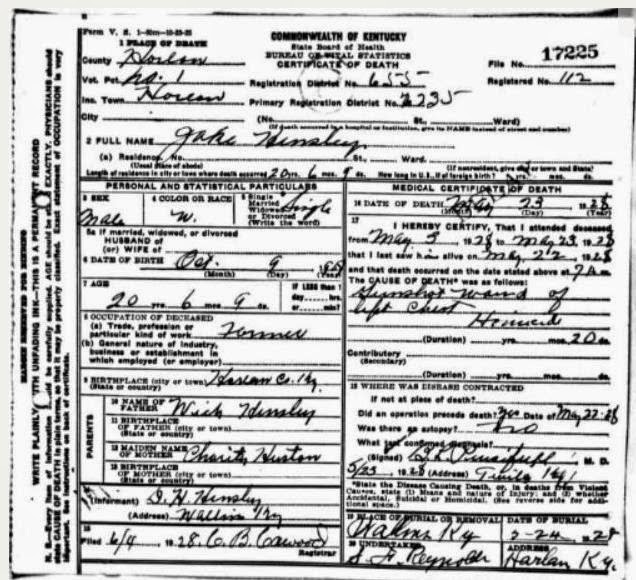 Form V. S. 1-50m-10-23-25
COMMONWEALTH OF KENTUCKY
State Board of Health
BUREAU OF VITAL STATISTICS
CERTIFICATE OF DEATH
File No. 17225
Registered No. 112
1 PLACE OF DEATH
County Harlan
Vot. Pct. No. 1
Registration District No. 655
Ins. Town Harlan
Primary Registration District No. 6235
City (No. St., Ward)
(If death occurred in a hospital or institution, give its NAME instead of street and number)
2 FULL NAME Jake Hensley
(a) Residence. No. St., Ward.
(Usual place of abode) (If nonresident, give city or town and State)
Length of residence in city or town where death occurred 20 yrs. 6 mos. 9 ds. How long in U.S., if of foreign birth? yrs. mos. ds.
PERSONAL AND STATISTICAL PARTICULARS
3 SEX Male
4 COLOR OR RACE W.
5 Single Married Widowed or Divorced (Write the word) Single
5a If married, widowed, or divorced
HUSBAND of
(or) WIFE of
6 DATE OF BIRTH Oct. 9
(Month) (Day) (Year)
7 AGE 20 yrs. 6 mos. 9 ds.
IF LESS than 1 day hrs. or min?
8 OCCUPATION OF DECEASED
(a) Trade, profession or particular kind of work Farmer
(b) General nature of industry, business or establishment in which employed (or employer)
9 BIRTHPLACE (city or town) Harlan Co. Ky.
(State or country)
PARENTS
10 NAME OF FATHER Wick Hensley
11 BIRTHPLACE OF FATHER (city or town)
(State or country)
12 MAIDEN NAME OF MOTHER Charity Huston
13 BIRTHPLACE OF MOTHER (city or town)
(State or country)
14 (Informant) D. H. Hensley
(Address) Wallins Ky
15 Filed 6/4 1928. C. B. Cawood
Registrar
MEDICAL CERTIFICATE OF DEATH
16 DATE OF DEATH May 23 1928
(Month) (Day) (Year)
17 I HEREBY CERTIFY, That I attended deceased
from May 3, 1928 to May 23, 1928
that I last saw him alive on May 22, 1928
and that death occurred on the date stated above at 7 A m.
The CAUSE OF DEATH* was as follows:
Gunshot wound of
left Chest
Homicide
(Duration) yrs. mos. 20 ds.
Contributory
(Secondary)
(Duration) yrs. mos. ds.
18 WHERE WAS DISEASE CONTRACTED
If not at place of death?
Did an operation precede death? Yes Date of May 22-28
Was there an autopsy? No
What test confirmed diagnosis?
(Signed) M. D.
5/23, 1928 (Address) Ky
*State the Disease Causing Death, or, in deaths from Violent Causes, state (1) Means and nature of Injury; and (2) whether Accidental, Suicidal or Homicidal. (See reverse side for additional space.)
19 PLACE OF BURIAL OR REMOVAL Wallins Ky
DATE OF BURIAL 5-24 1928
20 UNDERTAKER Reynolds
ADDRESS Harlan Ky.
MARGIN RESERVED FOR BINDING
WRITE PLAINLY WITH UNFADING INK—THIS IS A PERMANENT RECORD